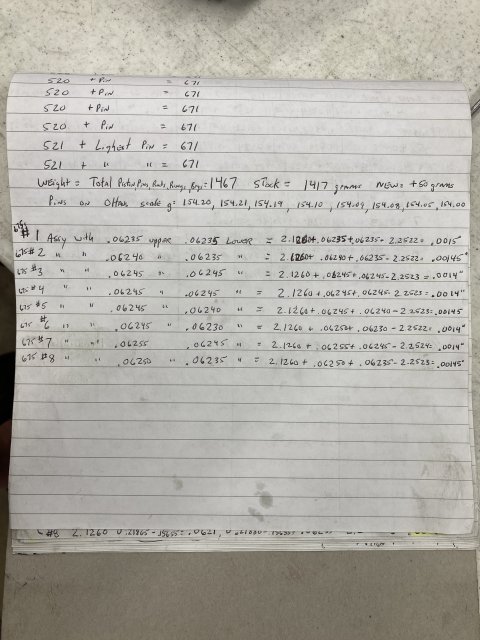 520 + Pin = 671
520 + Pin = 671
520 + Pin = 671
520 + Pin = 671
521 + Lighest Pin = 671
521 + " " = 671
Weight = Total Piston, Pins, Rods, Rings, Brgs = 1467 Stock = 1417 gramms New = +50 gramms
Pins on OHaus scale g = 154.20, 154.21, 154.19, 154.10, 154.09, 154.08, 154.05, 154.00
# 1 Assy with .06235 upper .06235 Lower = 2.1260+.06235+.06235 - 2.2522= .0015"
675 #2 " " .06240 " .06235 " = 2.1260+ .06240 + .06235 - 2.2522= .00145"
675 #3 " " .06245 " .06245 " = 2.1260 + .06245 + .06245 - 2.2523 = .0014"
675 #4 " " .06245 " .06245 " = 2.1260 + .06245 + .06245 - 2.2523 = .0014"
675 #5 " " .06245 " .06240 " = 2.1260 + .06245 + .06240 - 2.2523= .00145
675 #6 " " .06245 " .06230 " = 2.1260 + .06250 + .06230 - 2.2522= .0014"
675 #7 " " .06255 .06245 " = 2.1260 + .06255 + .06245 - 2.2524= .0014"
675 #8 " " .06250 " .06235 " = 2.1260 + .06250 + .06235 - 2.2523= .00145"
#8 2.1260